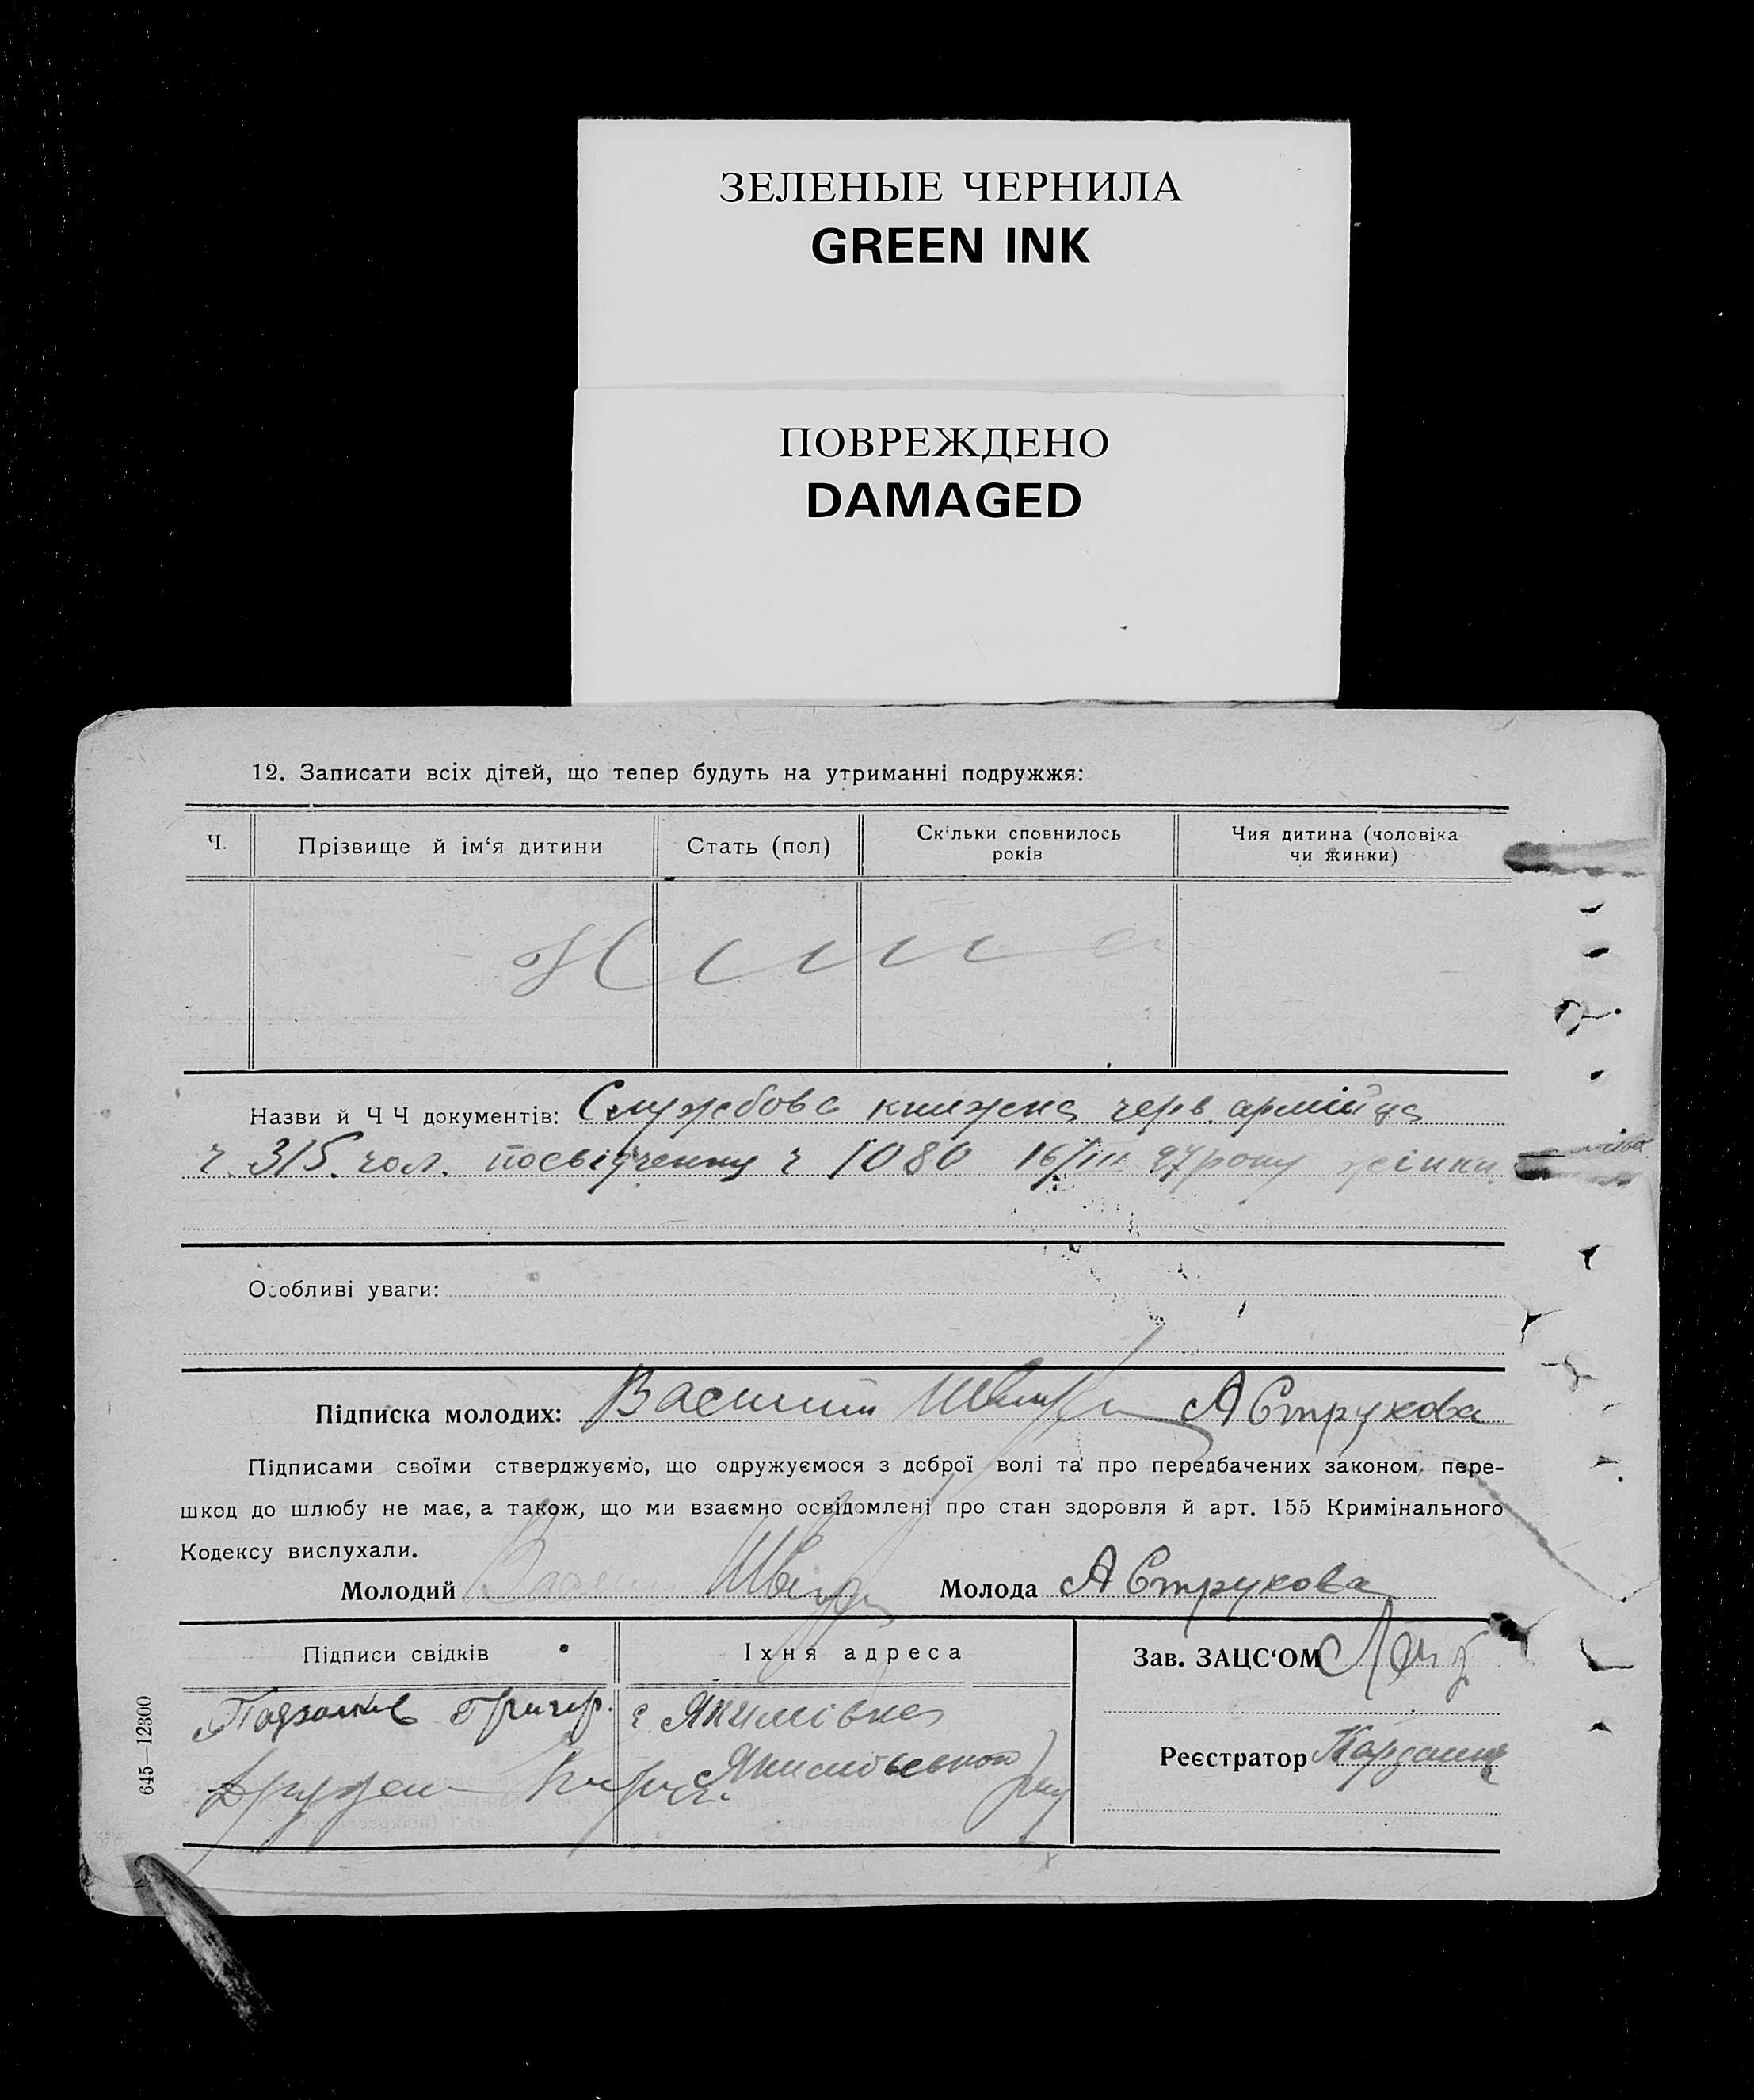 ЗЕЛЕНЫЕ ЧЕРНИЛА
GREEN INK
ПОВРЕЖДЕНО
DAMAGED
12. Записати всіх дітей, що тепер будуть на утриманні подружжя:
Ч. Прізвище й ім‘я дитини Стать (пол) Скільки сповнилось років Чия дитина (чоловіка чи жинки)
Нима
Назви й Ч Ч документів: Службова книжка черв. армійця
ч. 315. чол. посвідчення ч 1080 16/III 27 року жінки
Особливі уваги:
Підписка молодих: Василий АСтрукова
Підписами своїми стверджуємо, що одружуємося з доброї волі та про передбачених законом пере-
шкод до шлюбу не має, а також, що ми взаємно освідомлені про стан здоровля й арт. 155 Кримінального
Кодексу вислухали.
Молодий Молода АСтрукова
Підписи свідків Їхня адреса Зав. ЗАЦС‘ОМ
Григор. с. Якимівка
Якимовської Реєстратор
645—12300